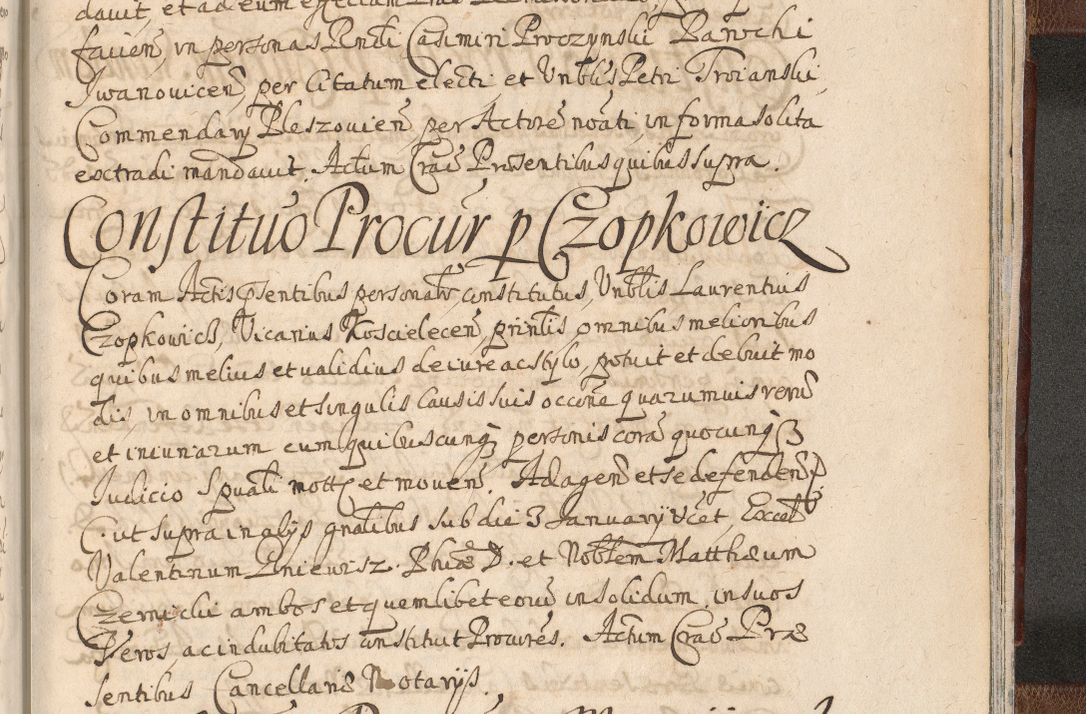 davit, et ad eum effectum
favien, in personas Rndi Casimiri Proczynski Parochi
Iwanovicen, per Citatum electi et Vnblis Petri Troianski
Commendarÿ Pleszovien, per Actore noati, in forma solita
extradi mandavit. Actum Crae Præsentibus quibus supra.
Constituo Procur p Czopkowicz
Coram Actis psentibus personalr constitutus, Vnblis Laurentius
Czopkowicz, Vicarius Koscielecen, prinlis omnibus melioribus
quibus melius et validius de iure ac stylo, potuit et debuit mo
dis, in omnibus et singulis causis suis occōne quarumvis rerū
et iniuriarum cum quibuscunq personis corā quocunq
Iudicio Spuali mott et moven. Ad agen et se defenden
C. ut supra in alÿs gnalibus sub die 3 Januarÿ Vcet, Excel
Valentinum Knieurisz Phiæ D. et Noblem Matthæum
Czernicki ambos et quemlibet eorū in solidum, in suos
Veros, ac indubitatos constituit Procures. Actum Crae Præ
sentibus Cancellariæ Notarÿs.